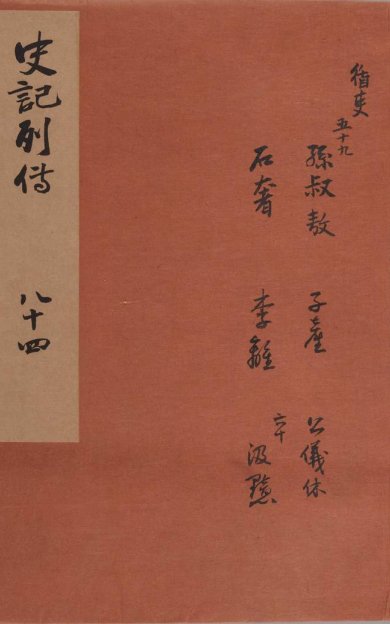 循吏 五十九
孫叔敖 子產 公儀休
石奢 李離 六十 汲黯
史記列傳 八十四